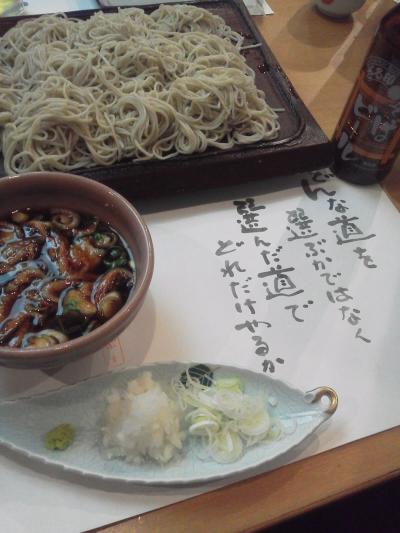 どんな道を
選ぶかではなく
選んだ道で
どれだけやるか
そば
ビール